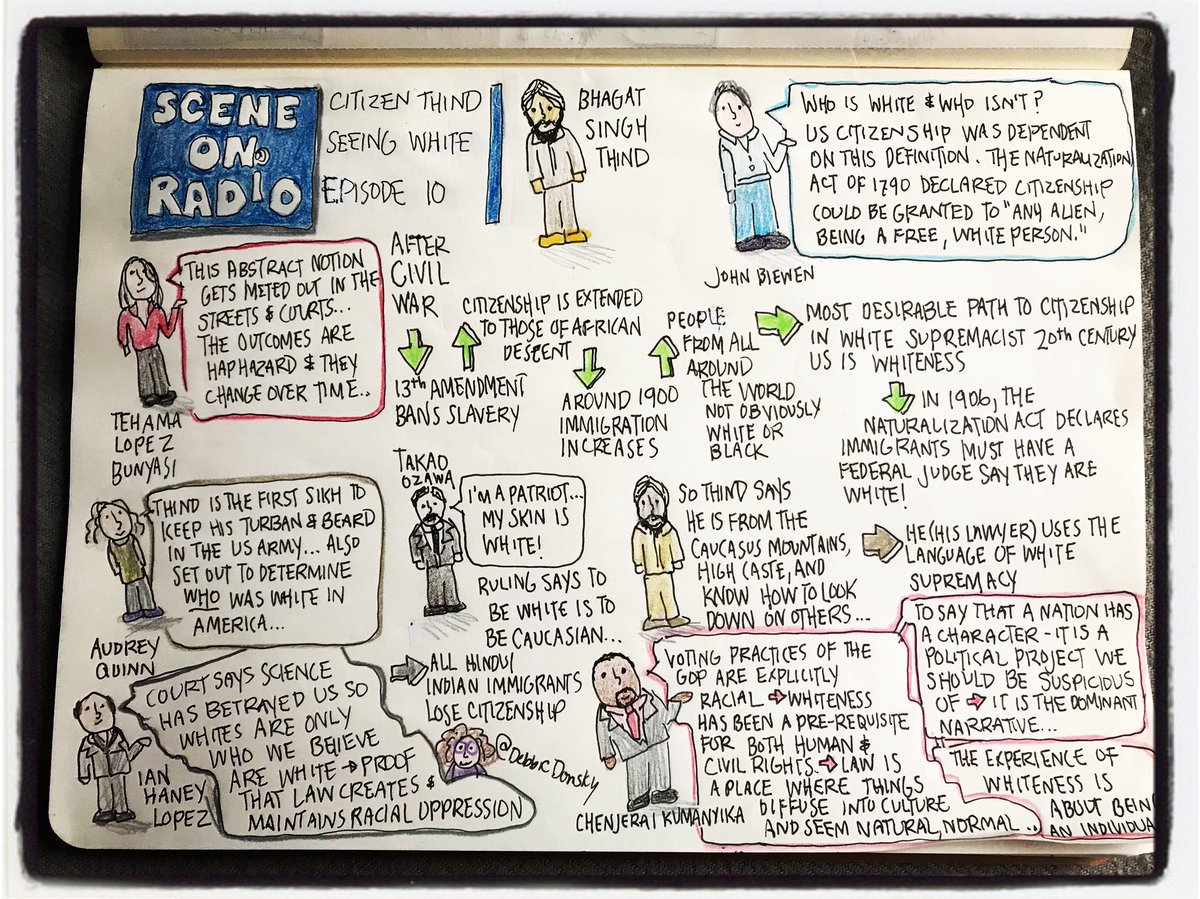 SCENE
ON
RADIO
CITIZEN THIND
SEEING WHITE
EPISODE 10
BHAGAT
SINGH
THIND
WHO IS WHITE & WHO ISN'T?
US CITIZENSHIP WAS DEPENDENT
ON THIS DEFINITION. THE NATURALIZATION
ACT OF 1790 DECLARED CITIZENSHIP
COULD BE GRANTED TO "ANY ALIEN,
BEING A FREE, WHITE PERSON."
JOHN BIEWEN
THIS ABSTRACT NOTION
GETS METED OUT IN THE
STREETS & COURTS...
THE OUTCOMES ARE
HAPHAZARD & THEY
CHANGE OVER TIME...
TEHAMA
LOPEZ
BUNYASI
AFTER
CIVIL
WAR
13th AMENDMENT
BANS SLAVERY
CITIZENSHIP IS EXTENDED
TO THOSE OF AFRICAN
DESCENT
AROUND 1900
IMMIGRATION
INCREASES
PEOPLE
FROM ALL
AROUND
THE WORLD
NOT OBVIOUSLY
WHITE OR
BLACK
MOST DESIRABLE PATH TO CITIZENSHIP
IN WHITE SUPREMACIST 20th CENTURY
US IS WHITENESS
IN 1906, THE
NATURALIZATION ACT DECLARES
IMMIGRANTS MUST HAVE A
FEDERAL JUDGE SAY THEY ARE
WHITE!
THIND IS THE FIRST SIKH TO
KEEP HIS TURBAN & BEARD
IN THE US ARMY... ALSO
SET OUT TO DETERMINE
WHO WAS WHITE IN
AMERICA...
AUDREY
QUINN
TAKAO
OZAWA
I'M A PATRIOT...
MY SKIN IS
WHITE!
RULING SAYS TO
BE WHITE IS TO
BE CAUCASIAN...
SO THIND SAYS
HE IS FROM THE
CAUCASUS MOUNTAINS,
HIGH CASTE, AND
KNOW HOW TO LOOK
DOWN ON OTHERS...
HE (HIS LAWYER) USES THE
LANGUAGE OF WHITE
SUPREMACY
COURT SAYS SCIENCE
HAS BETRAYED US SO
WHITES ARE ONLY
WHO WE BELIEVE
ARE WHITE → PROOF
THAT LAW CREATES &
MAINTAINS RACIAL OPPRESSION
IAN
HANEY
LOPEZ
ALL HINDU
INDIAN IMMIGRANTS
LOSE CITIZENSHIP
@Debbie Donsky
VOTING PRACTICES OF THE
GOP ARE EXPLICITLY
RACIAL → WHITENESS
HAS BEEN A PRE-REQUISITE
FOR BOTH HUMAN &
CIVIL RIGHTS. → LAW IS
A PLACE WHERE THINGS
DIFFUSE INTO CULTURE
AND SEEM NATURAL, NORMAL...
CHENJERAI KUMANYIKA
TO SAY THAT A NATION HAS
A CHARACTER - IT IS A
POLITICAL PROJECT WE
SHOULD BE SUSPICIOUS
OF → IT IS THE DOMINANT
NARRATIVE...
THE EXPERIENCE OF
WHITENESS IS
ABOUT BEIN
AN INDIVIDUA